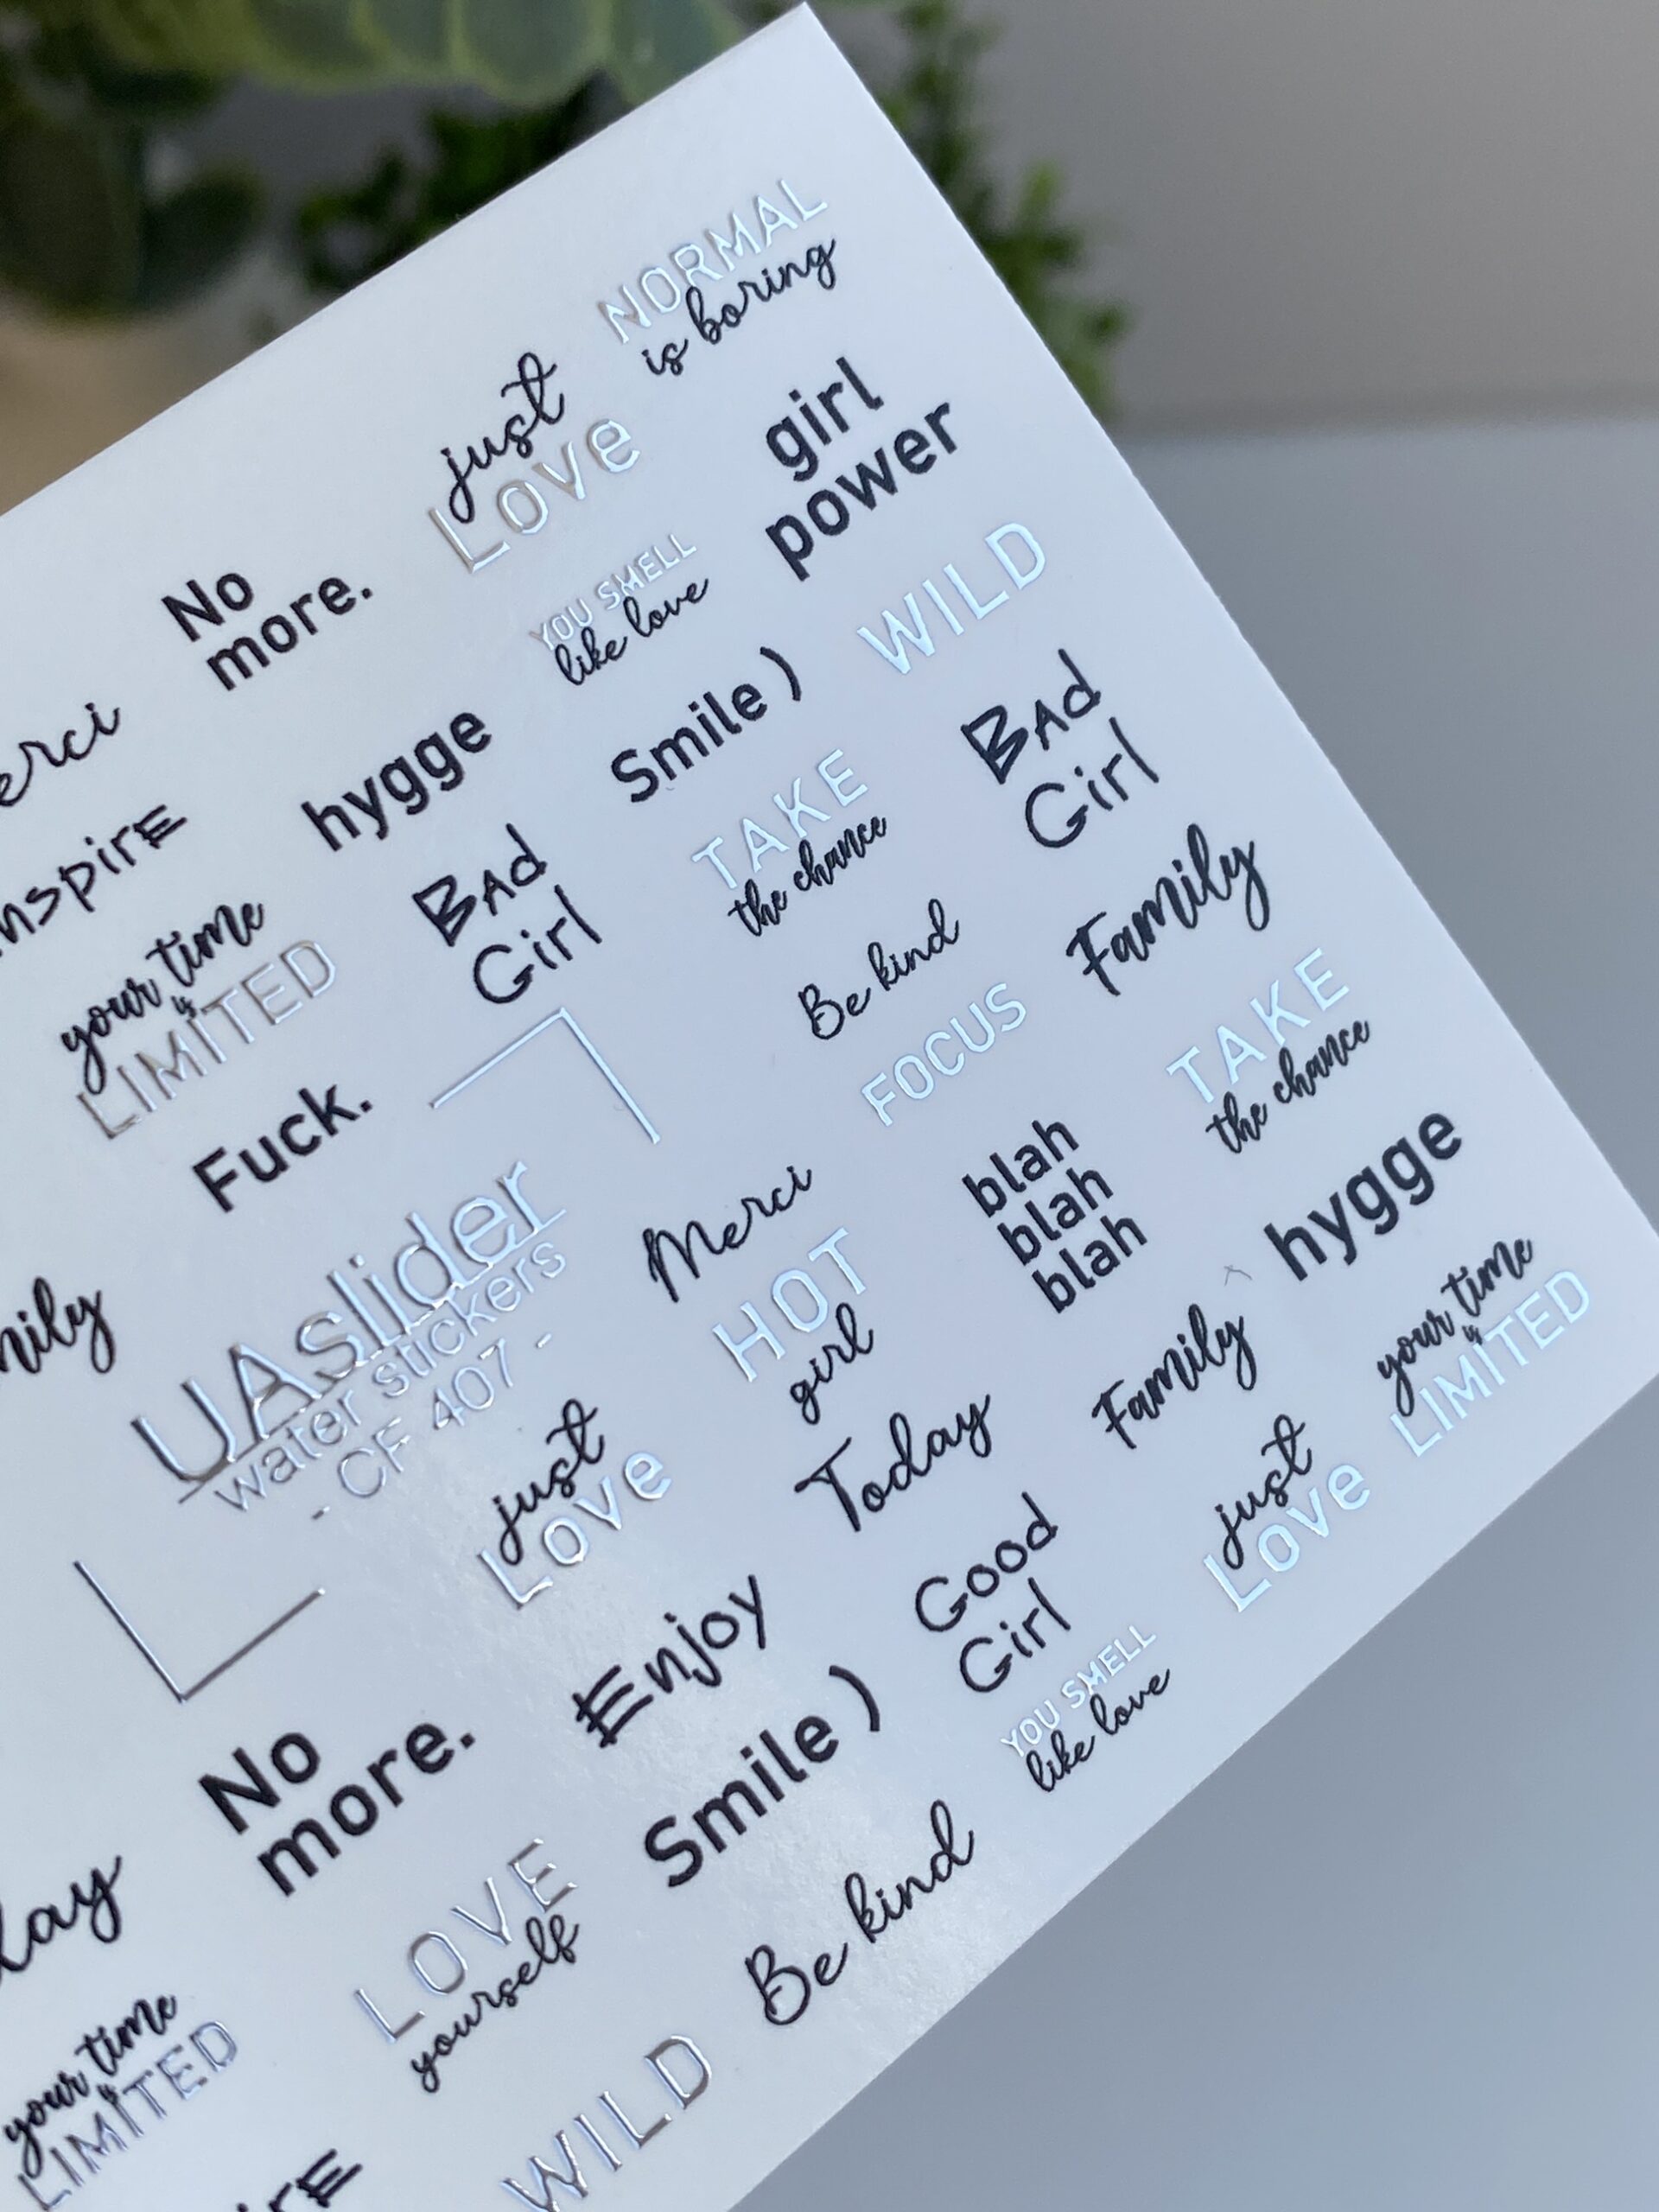 NORMAL
is boring
just
Love
girl
power
No
more.
YOU SMELL
like love
WILD
erci
hygge
Smile )
BAd
Girl
nspirE
TAKE
the chance
your time
is
LIMITED
BAd
Girl
Be kind
Family
FOCUS
TAKE
the chance
Fuck.
UAslider
water stickers
- CF 407 -
Merci
blah
blah
blah
hygge
HOT
girl
mily
just
Love
Today
Family
your time
is
LIMITED
Enjoy
Good
Girl
just
Love
No
more.
Smile )
YOU SMELL
like love
day
LOVE
yourself
Be kind
your time
is
LIMITED
WILD
irE